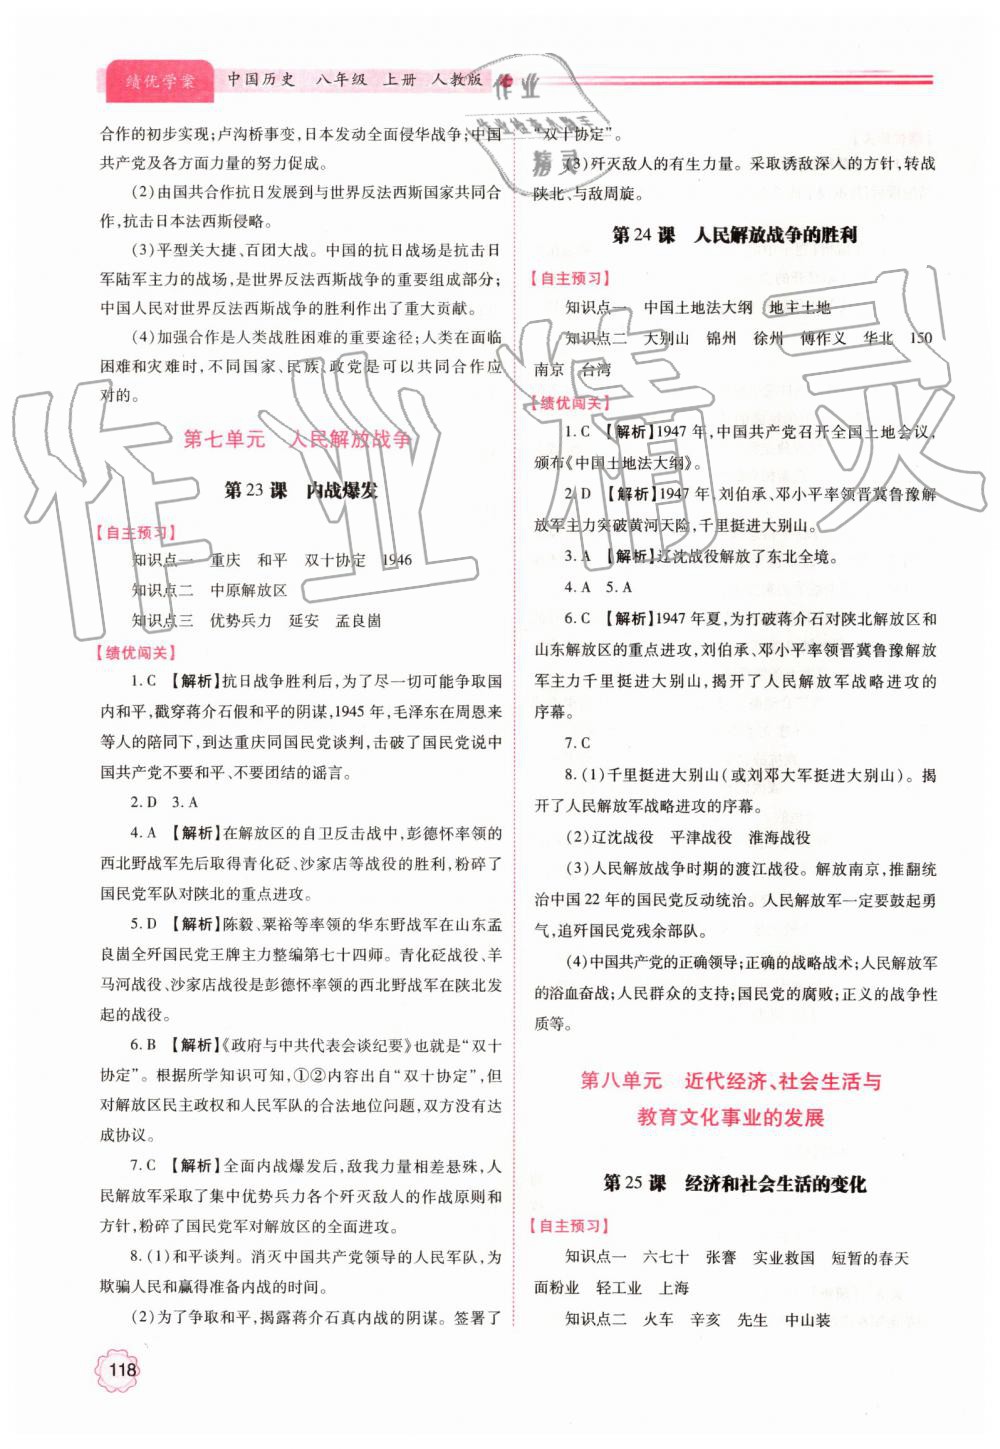 绩优学案 中国历史 八年级 上册 人教版
合作的初步实现;卢沟桥事变,日本发动全面侵华战争;中国
共产党及各方面力量的努力促成。
(2)由国共合作抗日发展到与世界反法西斯国家共同合
作,抗击日本法西斯侵略。
(3)平型关大捷、百团大战。中国的抗日战场是抗击日
军陆军主力的战场,是世界反法西斯战争的重要组成部分;
中国人民对世界反法西斯战争的胜利作出了重大贡献。
(4)加强合作是人类战胜困难的重要途径;人类在面临
困难和灾难时,不同国家、民族、政党是可以共同合作应
对的。
第七单元 人民解放战争
第 23 课 内战爆发
【自主预习】
知识点一 重庆 和平 双十协定 1946
知识点二 中原解放区
知识点三 优势兵力 延安 孟良崮
【绩优闯关】
1. C 【解析】抗日战争胜利后,为了尽一切可能争取国
内和平,戳穿蒋介石假和平的阴谋,1945 年,毛泽东在周恩来
等人的陪同下,到达重庆同国民党谈判,击破了国民党说中
国共产党不要和平、不要团结的谣言。
2. D 3. A
4. A 【解析】在解放区的自卫反击战中,彭德怀率领的
西北野战军先后取得青化砭、沙家店等战役的胜利,粉碎了
国民党军队对陕北的重点进攻。
5. D 【解析】陈毅、粟裕等率领的华东野战军在山东孟
良崮全歼国民党王牌主力整编第七十四师。青化砭战役、羊
马河战役、沙家店战役是彭德怀率领的西北野战军在陕北发
起的战役。
6. B 【解析】《政府与中共代表会谈纪要》也就是“双十
协定”。根据所学知识可知,①②内容出自“双十协定”,但
对解放区民主政权和人民军队的合法地位问题,双方没有达
成协议。
7. C 【解析】全面内战爆发后,敌我力量相差悬殊,人
民解放军采取了集中优势兵力各个歼灭敌人的作战原则和
方针,粉碎了国民党军对解放区的全面进攻。
8. (1)和平谈判。消灭中国共产党领导的人民军队,为
欺骗人民和赢得准备内战的时间。
(2)为了争取和平,揭露蒋介石真内战的阴谋。签署了
“双十协定”。
(3)歼灭敌人的有生力量。采取诱敌深入的方针,转战
陕北、与敌周旋。
第 24 课 人民解放战争的胜利
【自主预习】
知识点一 中国土地法大纲 地主土地
知识点二 大别山 锦州 徐州 傅作义 华北 150
南京 台湾
【绩优闯关】
1. C 【解析】1947 年,中国共产党召开全国土地会议,
颁布《中国土地法大纲》。
2. D 【解析】1947 年,刘伯承、邓小平率领晋冀鲁豫解
放军主力突破黄河天险,千里挺进大别山。
3. A 【解析】辽沈战役解放了东北全境。
4. A 5. A
6. C 【解析】1947 年夏,为打破蒋介石对陕北解放区和
山东解放区的重点进攻,刘伯承、邓小平率领晋冀鲁豫解放
军主力千里挺进大别山,揭开了人民解放军战略进攻的
序幕。
7. C
8. (1)千里挺进大别山(或刘邓大军挺进大别山)。揭
开了人民解放军战略进攻的序幕。
(2)辽沈战役 平津战役 淮海战役
(3)人民解放战争时期的渡江战役。解放南京,推翻统
治中国 22 年的国民党反动统治。人民解放军一定要鼓起勇
气,追歼国民党残余部队。
(4)中国共产党的正确领导;正确的战略战术;人民解放军
的浴血奋战;人民群众的支持;国民党的腐败;正义的战争性
质等。
第八单元 近代经济、社会生活与
教育文化事业的发展
第 25 课 经济和社会生活的变化
【自主预习】
知识点一 六七十 张謇 实业救国 短暂的春天
面粉业 轻工业 上海
知识点二 火车 辛亥 先生 中山装
118
作业
精灵
作业精灵